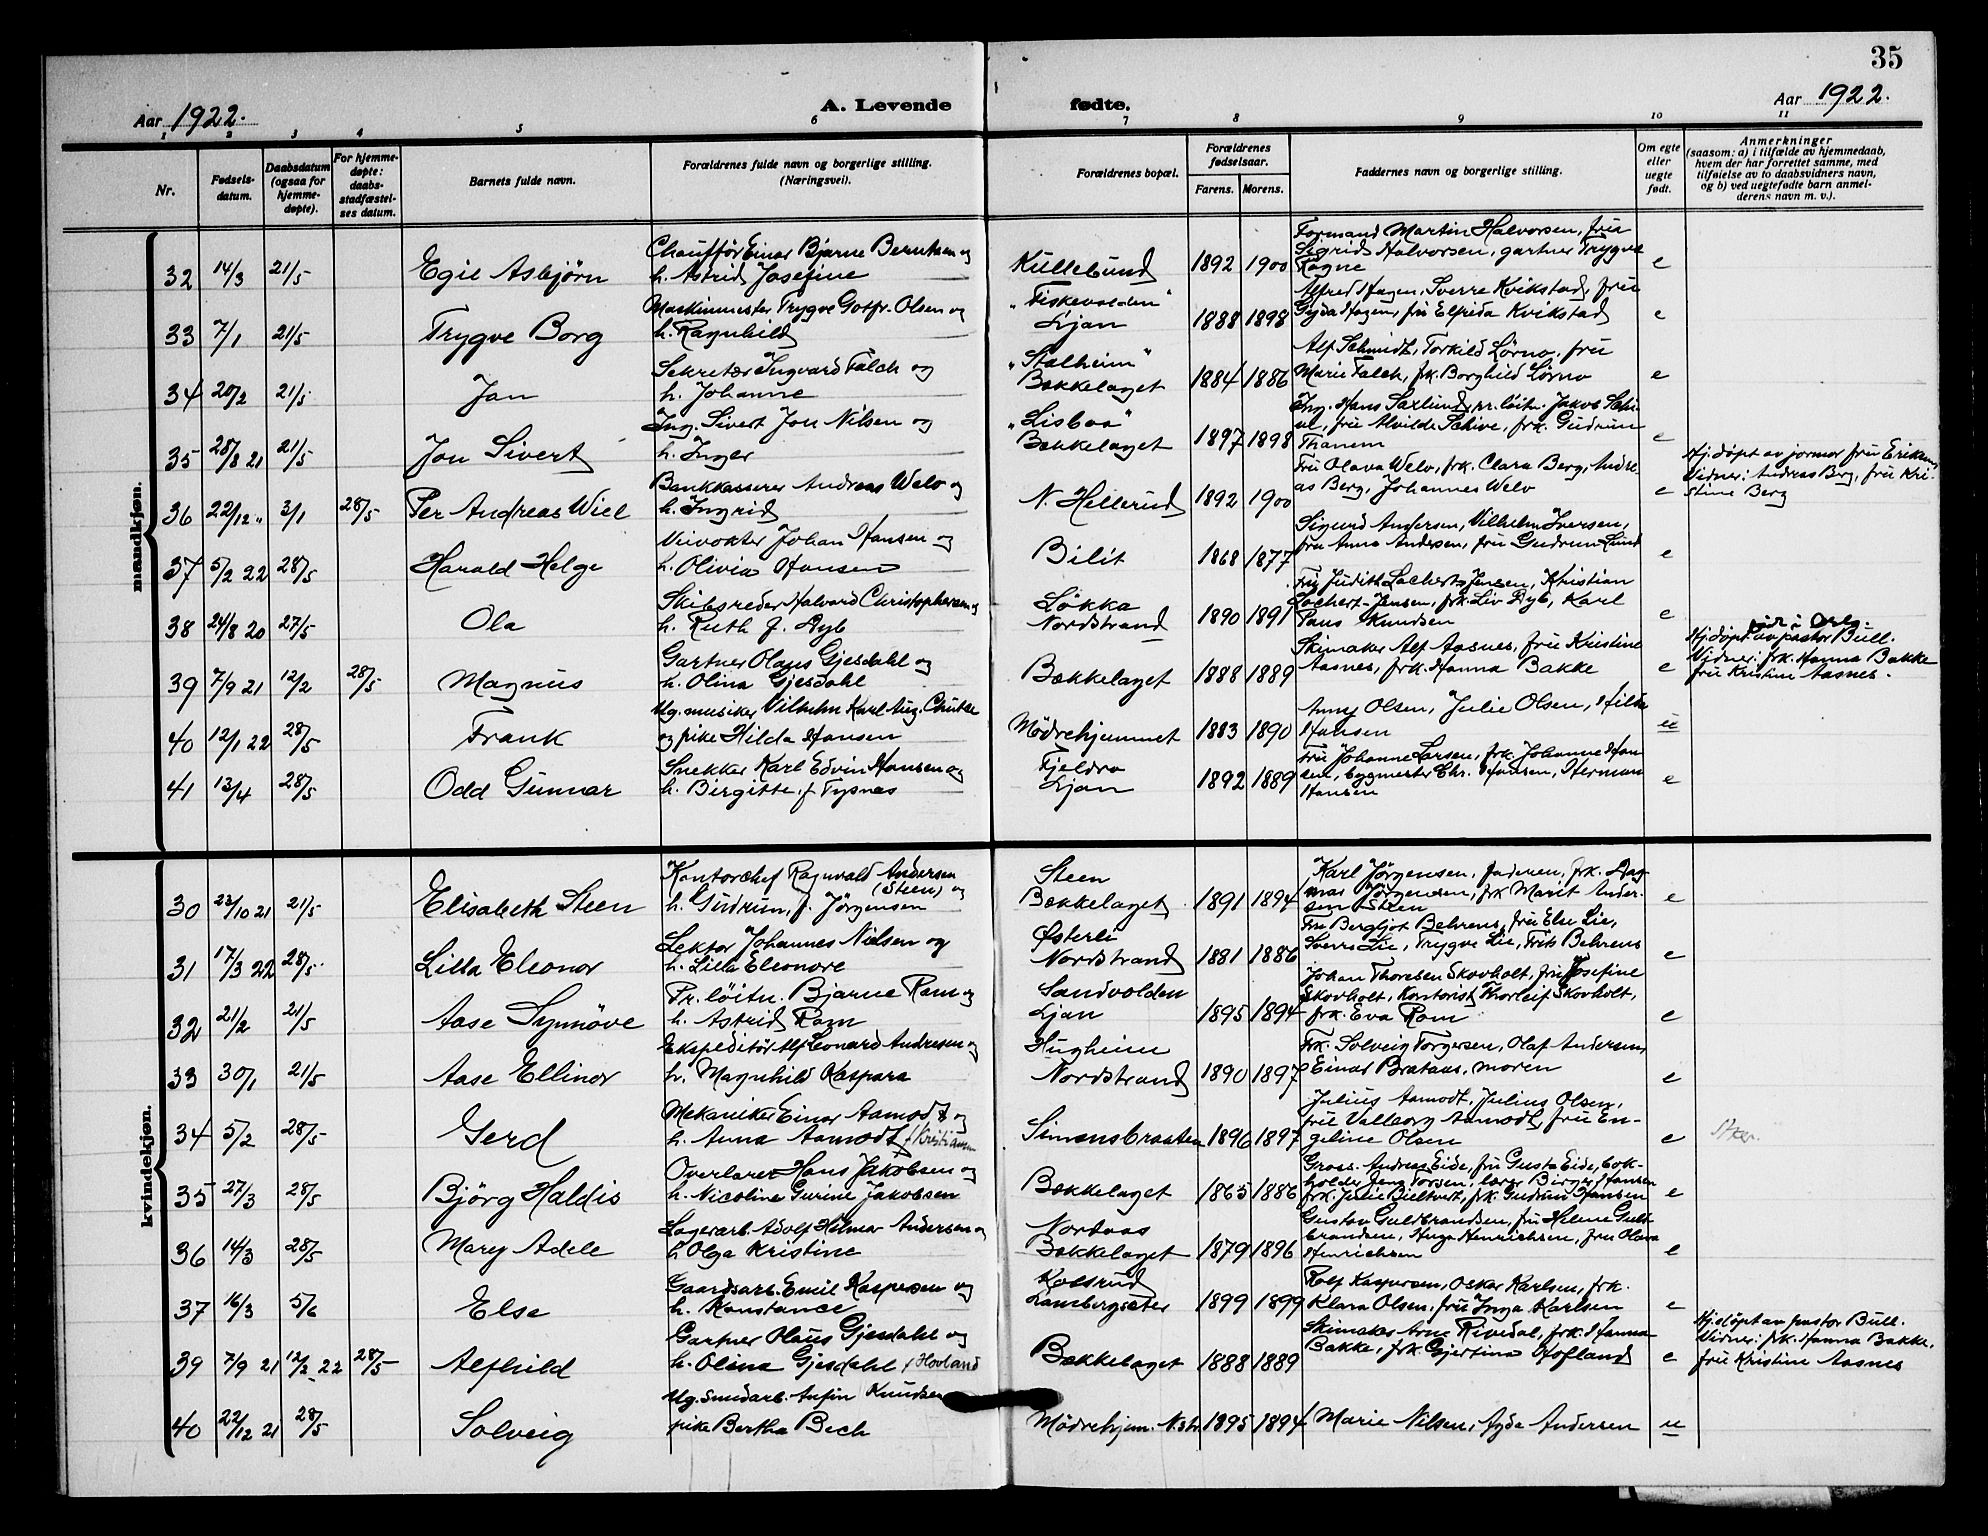 35
Aar 1922.
A. Levende
fødte.
Aar 1922.
1 2 3 4 5 6 7 8 9 10 11
Nr.
Fødsels-
datum.
Daabsdatum
(ogsaa for
hjemme-
døpte).
For hjemme-
døpte:
daabs-
stadfæstel-
ses datum.
Barnets fulde navn.
Forældrenes fulde navn og borgerlige stilling.
(Næringsvei).
Forældrenes bopæl.
Forældrenes
fødselsaar.
Farens. Morens.
Faddernes navn og borgerlige stilling.
Om egte
eller
uegte
født.
Anmerkninger
(saasom: a) i tilfælde av hjemmedaab,
hvem der har forrettet samme, med
tilføielse av to daabsvidners navn,
og b) ved uegtefødte barn anmel-
derens navn m. v.).
mandkjøn.
32 14/3 21/5 Egil Asbjørn
Chauffør Einar Bjarne Berntsen og
h. Astrid Josefine
Kullebund 1892 1900
Formand Martin Halvorsen, frue
Sigrid Halvorsen, gartner Trygve
Ragne
e
33 7/1 21/5 Trygve Borg
Maskinmester Trygve Gotfr. Olsen og
h. Ragnhild
"Fiskevolden"
Ljan 1888 1898
Alfred Hagen, Sverre Kvikstad, frue
Gyda Hagen, fru Elfrida Kvikstad
e
34 20/2 21/5 Jan
Sekretær Ingvard Falch og
h. Johanne
"Stalheim"
Bækkelaget 1884 1886
Alf Schmidt, Torkild Lørno, fru
Marie Falch, frk. Borghild Lørno
e
35 28/8 21 21/5 Jon Sivert
Ing. Sivert Jon Nilsen og
h. Inger
"Lisboa"
Bækkelaget 1897 1898
Ing. Hans Saxlund, pr. løitn. Jakob Schi-
ve, fru Alvilde Schive, frk. Gudrun
Thanem
e
36 22/12 " 3/1 28/5 Per Andreas Wiel
Bankkasserer Andreas Welo og
h. Ingrid
N. Hellerud 1892 1900
Fru Olava Welo, frk. Clara Berg, Andre-
as Berg, Johannes Welo
e
Hj.døpt av jormor fru Eriksen
Vidner: Andreas Berg, fru Kri-
stine Berg
37 5/2 22 28/5 Harald Helge
Veivokter Johan Hansen og
h. Olivia Hansen
Bilit 1868 1877
Sigurd Andersen, Vilhelm Iversen,
fru Anna Andersen, fru Gudrun Lund
e
38 24/8 20 27/5 Ola
Skibsreder Halvard Christophersen og
h. Ruth f. Dyb
Løkka
Nordstrand 1890 1891
Fru Judith Lochert-Jensen, Kristian
Lochert-Jensen, frk. Liv Dyb, Karl
Paus Knudsen
e
39 7/9 21 12/2 28/5 Magnus
Gartner Olaus Gjesdahl og
h. Olina Gjesdahl
Bækkelaget 1888 1889
Skimaker Alf Aasnes, fru Kristine
Aasnes, frk. Hanna Bakke
e
Hj.døpt av pastor Bull.
Vidner: frk. Hanna Bakke
fru Kristine Aasnes.
40 12/1 22 28/5 Frank
Ug. musiker Vilhelm Karl Aug.
og pike Hilda Hansen
Mødrehjemmet 1883 1890
Anny Olsen, Julie Olsen, Hilda
Hansen
u
41 13/4 28/5 Odd Gunnar
Snekker Karl Edvin Hansen og
h. Birgitte, f. Tysnes
Fjeldro
Ljan 1892 1889
Fru Johanne Larsen, frk. Johanne Han-
sen, bygmester Chr. Hansen, Herman
Hansen
e
kvindekjøn.
30 23/10 21 21/5 Elisabeth Steen
Kontorchef Ragnvald Andersen
(Steen) og
h. Gudrun, f. Jørgensen
Steen
Bækkelaget 1891 1894
Karl Jørgensen, faderen, frk. Dag-
mar Jørgensen, frk Marit Ander-
sen Steen
e
31 17/3 22 28/5 Lilla Eleonor
Lektor Johannes Nielsen og
h. Lilla Eleonore
Østerli
Nordstrand 1881 1886
Fru Bergljot Behrens, fru Else Lie,
Sverre Lie, Trygve Lie, Frits Behrens
e
32 21/2 21/5 Aase Synnøve
Pr. løitn. Bjarne Ram og
h. Astrid Ram
Sandvolden
Ljan 1895 1894
Johan Thoresen Skovholt, fru Josefine
Skovholt, Kontorist Thorleif Skovholt,
frk. Eva Ram
e
33 30/1 21/5 Aase Ellinor
Ekspeditør Alf Leonard Andresen og
h. Magnhild Kaspara
Hugheim
Nordstrand 1890 1897
Frk. Solveig Torgersen, Olaf Andersen,
Einar Brataas, moren
e
34 5/2 28/5 Gerd
Mekaniker Einar Aamodt og
h. Anna Aamodt f. Kristiansen
Simensbraaten 1896 1897
Julius Aamodt, Julius Olsen,
fru Valborg Aamodt, fru En-
geline Olsen
e
35 27/3 28/5 Bjørg Haldis
Overlærer Hans Jakobsen og
h. Nicoline Gurine Jakobsen
Bækkelaget 1865 1886
Gross. Andreas Eide, fru Gusta Eide, bok-
holder Jens Torsen, lærer Birger Hansen
frk. Julie Bieltvedt, frk. Gudrun Hansen
e
36 14/3 28/5 Mary Adele
Lagerarb. Adolf Hilmar Andersen og
h. Olga Kristine
Nordaas
Bækkelaget 1879 1896
Gustav Guldbrandsen, fru Helene Guld-
brandsen, Hugo Henrichsen, fru Olava
Henrichsen
e
37 16/3 5/6 Else
Gaardsarb. Emil Kaspersen og
h. Konstance
Kolsrud
Lambergsæter 1899 1899
Rolf Kaspersen, Oskar Karlsen, frk.
Klara Olsen, fru Inga Karlsen
e
39 7/9 21 12/2 22 28/5 Alfhild
Gartner Olaus Gjesdahl og
h. Olina Gjesdahl f Hovland
Bækkelaget 1888 1889
Skimaker Arne Rivedal, frk. Hanna
Bakke, frk. Gjertina Hofland
e
Hj.døpt av pastor Bull.
Vidner: frk. Hanna Bakke,
fru Kristine Aasnes
40 22/12 21 28/5 Solveig
Ug. smedarb. Anfin Knudsen
pike Bertha Bech
Mødrehjem. N.str. 1895 1894
Marie Nilsen, Agda Andersen
u